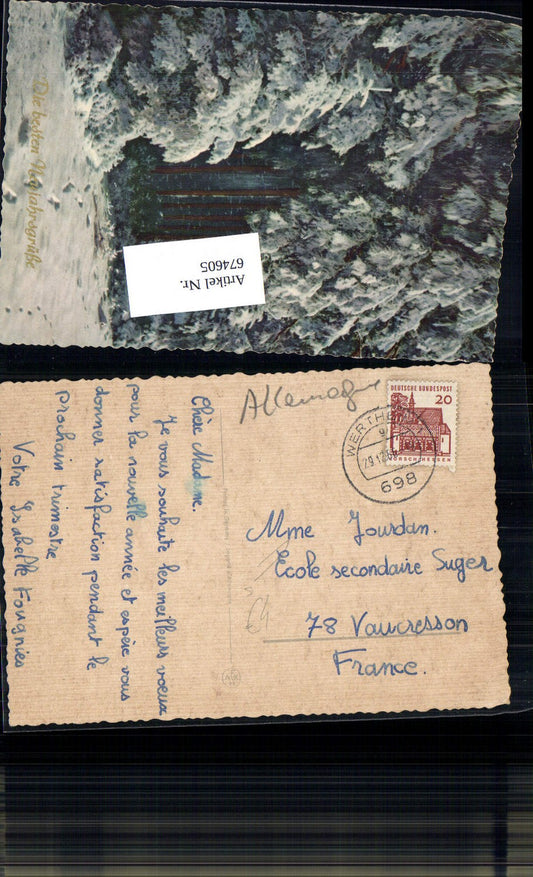 Die besten Neujahrsgrüße
Artikel Nr.
674605
Allemagne
DEUTSCHE BUNDESPOST
20
LORSCH/HESSEN
WERTHEIM
698
Chère Madame.
Je vous souhaite les meilleurs voeux
pour la nouvelle année et espère vous
donner satisfaction pendant le
prochain trimestre
Votre Isabelle Fougnies
Mme Jourdan.
Ecole secondaire Suger
78 Vaucresson
France.